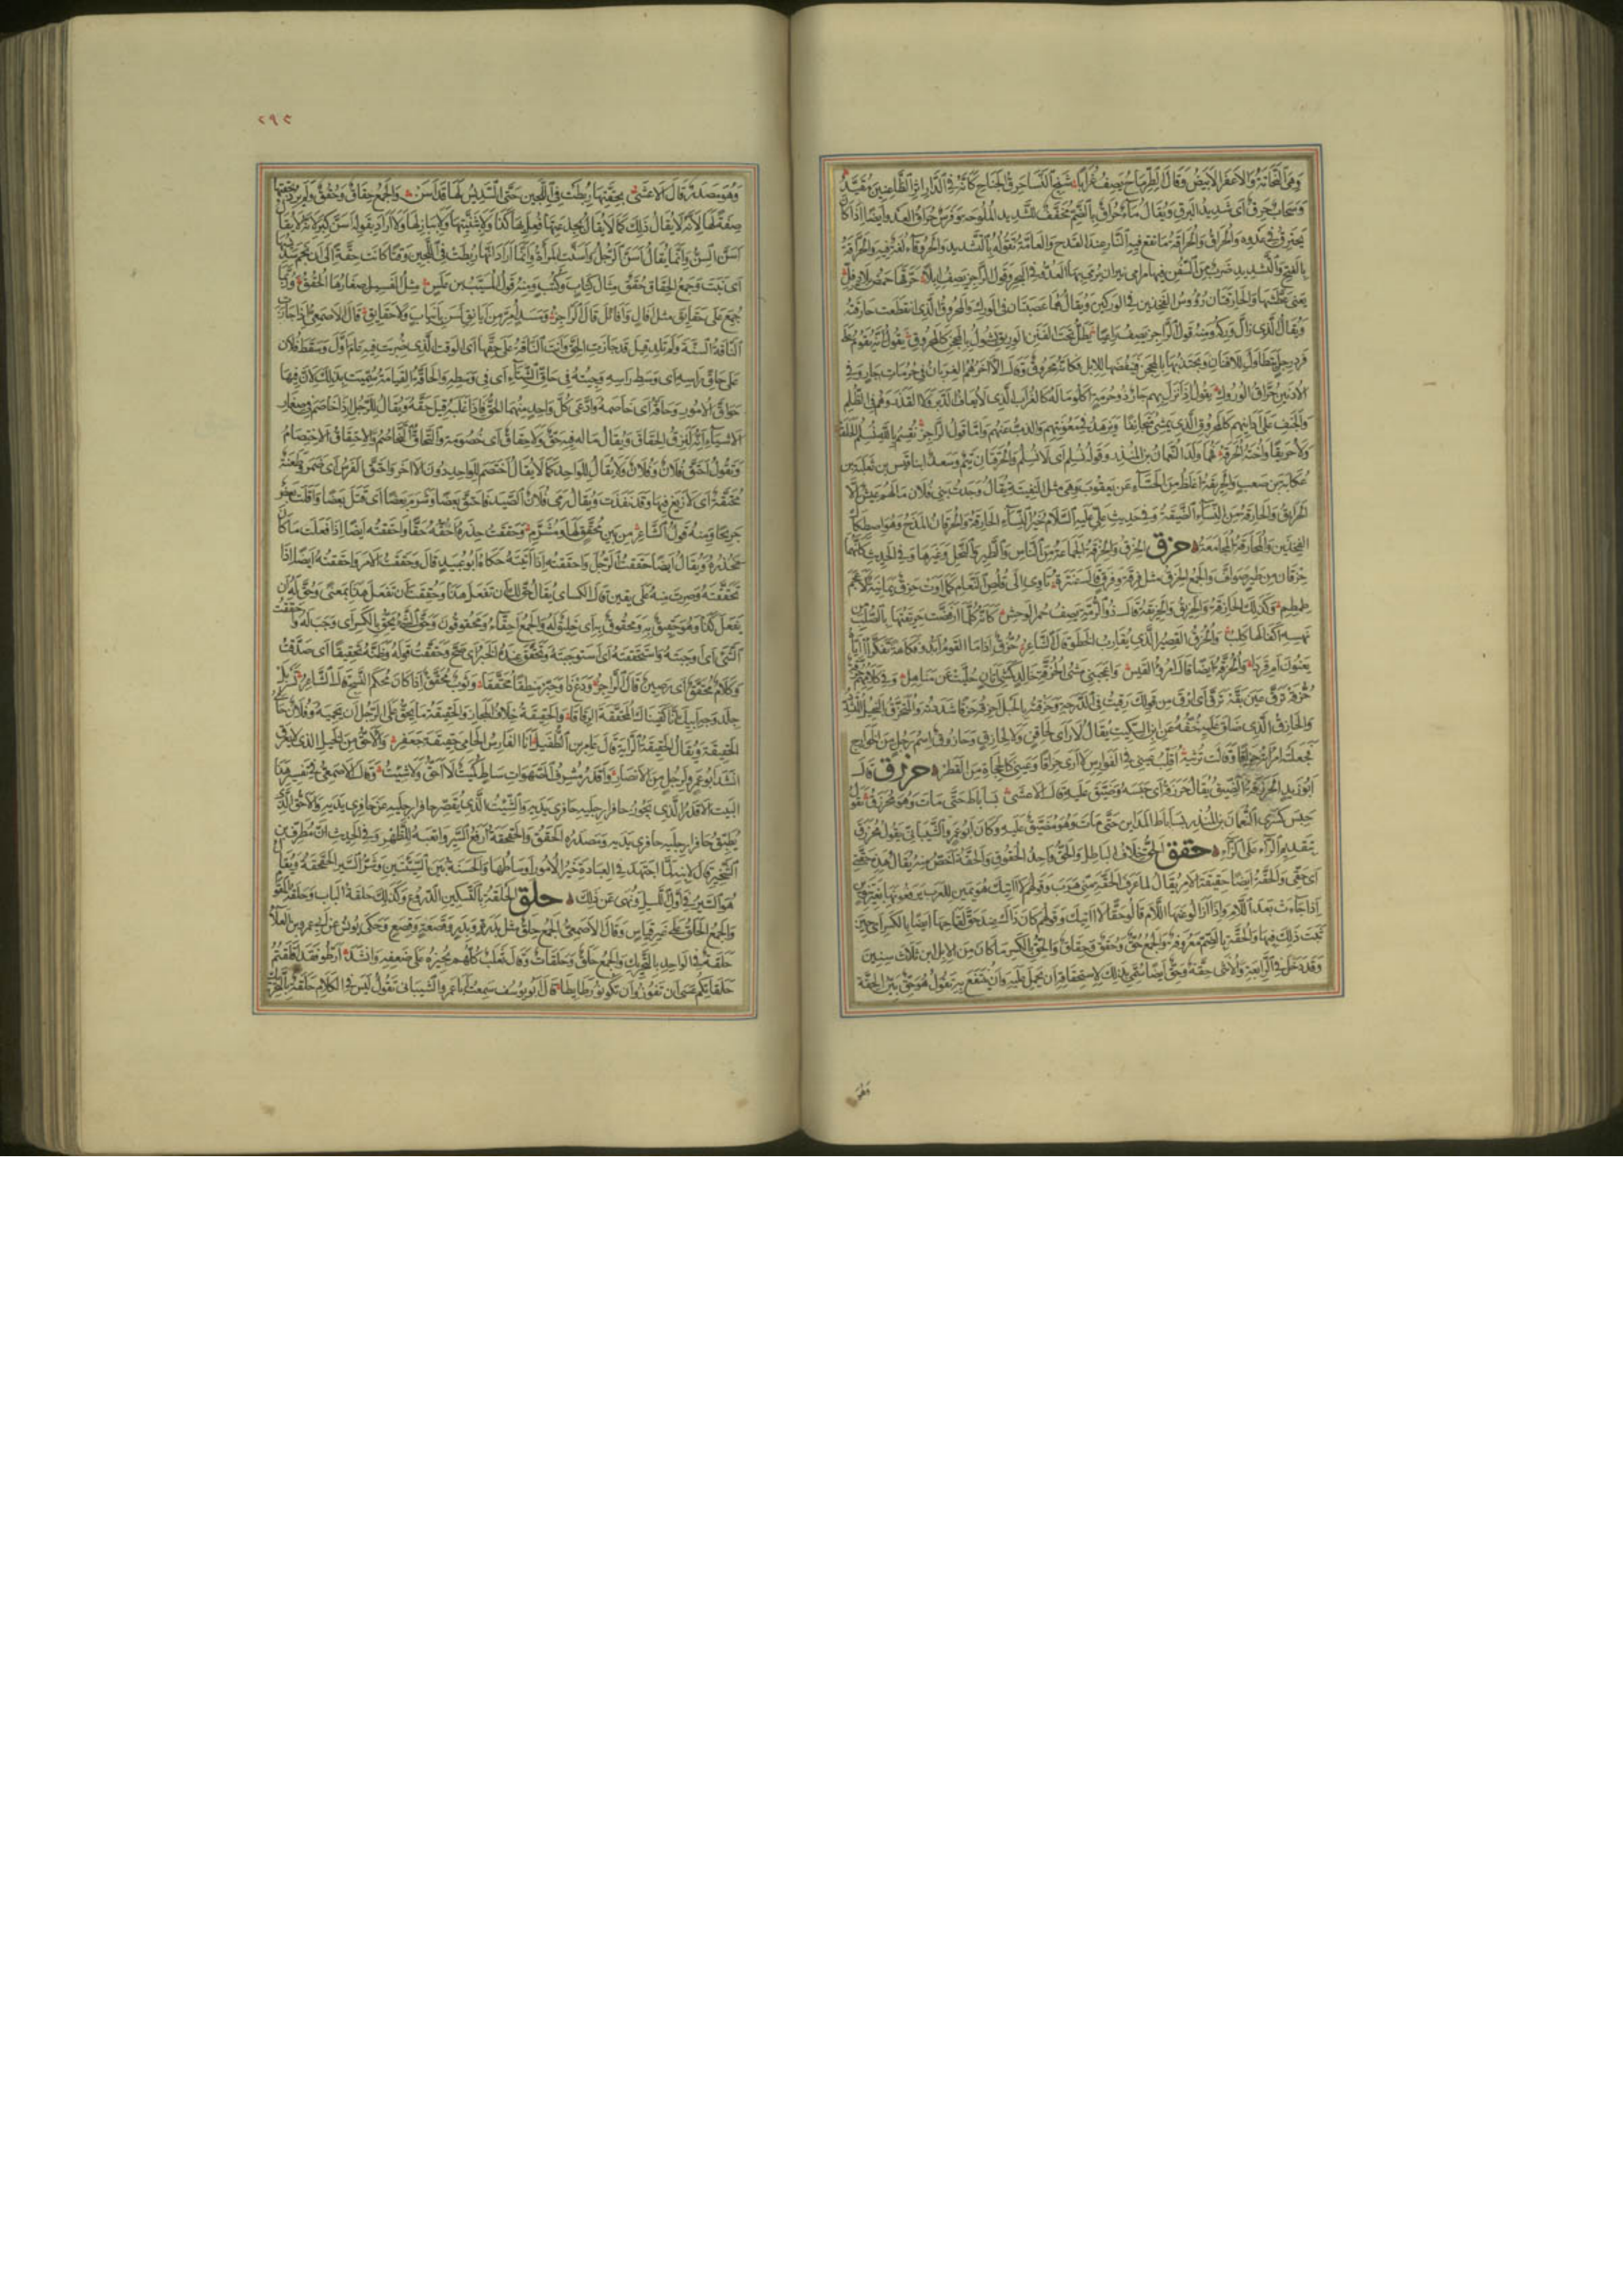 وَقَالَ الطِّرِمَّاحُ يَصِفُ غُرَابًا شَنِجُ النَّسَا حَرِقُ الْجَنَاحِ كَاَنَّهُ فِي الدَّارِ اِثْرَ الظَّاعِنِينَ مُقَيَّدُ
وَسَحَابٌ حَرِقٌ اَىْ شَدِيدُ الْبَرْقِ وَيُقَالُ مَاءٌ حُرَاقٌ
بِالْفَتْحِ وَالتَّشْدِيدِ ضَرْبٌ مِنَ السُّفُنِ فِيهَا مَرَامِي نِيرَانٍ يُرْمَى بِهَا الْعَدُوُّ فِي الْبَحْرِ وَقَوْلُ الرَّاجِزِ يَصِفُ اِبِلًا
يَعْنِي وَالْحَارِقَتَانِ رُؤُوسُ الْفَخِذَيْنِ فِي الْوَرِكَيْنِ وَيُقَالُ هُمَا عَصَبَتَانِ فِي الْوَرِكِ وَالْمَحْرُوقُ الَّذِي انْقَطَعَتْ حَارِقَتُهُ
وَيُقَالُ الَّذِي زَالَ وَرِكُهُ وَمِنْهُ قَوْلُ الرَّاجِزِ يَصِفُ رَاعِيًا يَظَلُّ تَحْتَ الْفَنَنِ الْوَرِيقِ يَشُولُ بِالْمِحْجَنِ كَالْمَحْرُوقِ يَقُولُ اِنَّهُ يَقُومُ عَلَى
فَرْدِ رِجْلٍ يَتَطَاوَلُ لِلْاَفْنَانِ وَيَجْتَذِبُهَا بِالْمِحْجَنِ فَيَنْفُضُهَا لِلْاِبِلِ فَكَاَنَّهُ مَحْرُوقٌ
وَالْحُرْقَتَانِ تَيْمٌ وَسَعْدٌ ابْنَا قَيْسِ بْنِ ثَعْلَبَةَ بْنِ
عُكَابَةَ بْنِ صَعْبٍ وَالْحَرِيقَةُ اَغْلَظُ مِنَ الْحَسَاءِ عَنْ يَعْقُوبَ وَهِيَ مِثْلُ النَّفِيتَةِ يُقَالُ وَجَدْتُ بَنِي فُلَانٍ مَا لَهُمْ عَيْشٌ اِلَّا
الْحَرَائِقُ وَالْحَارِقَةُ مِنَ النِّسَاءِ الضَّيِّقَةُ وَفِي حَدِيثِ عَلِيٍّ عَلَيْهِ السَّلَامُ خَيْرُ النِّسَاءِ الْحَارِقَةُ وَالْحُرْقَانُ الْمَذَحُ وَهُوَ اصْطِكَاكُ
الْفَخِذَيْنِ وَالْمُحَارَقَةُ الْمُجَامَعَةُ حزق الْحِزْقُ وَالْحِزْقَةُ الْجَمَاعَةُ مِنَ النَّاسِ وَالطَّيْرِ وَالنَّخْلِ وَغَيْرِهَا وَفِي الْحَدِيثِ كَاَنَّهُمَا
حِزْقَانِ مِنْ طَيْرٍ صَوَافَّ وَالْجَمْعُ الْحِزَقُ مِثْلُ فِرْقَةٍ وَفِرَقٍ قَالَ عَنْتَرَةُ تَأْوِي اِلَى قُلُصِ النَّعَامِ كَمَا اَوَتْ حِزَقٌ يَمَانِيَةٌ لِاَعْجَمَ
طِمْطِمِ وَكَذَلِكَ الْحَازِقَةُ وَالْحَزِيقُ وَالْحَزِيقَةُ قَالَ ذُو الرُّمَّةِ يَصِفُ حُمُرَ الْوَحْشِ كَاَنَّهُ كُلَّمَا ارْفَضَّتْ حَزِيقَتُهَا بِالصُّلْبِ
نَهْسِهِ اَكْفَالَهَا كَلِبُ وَالْحُزُقُّ الْقَصِيرُ الَّذِي يُقَارِبُ الْخَطْوَ قَالَ الشَّاعِرُ
وَالْحُزُقَّةُ اَيْضًا قَالَ امْرُؤُ الْقَيْسِ وَاَعْجَبَنِي مَشْيُ الْحُزُقَّةِ خَالِدٍ كَمَشْيِ اَتَانٍ حُلِّئَتْ عَنْ مَنَاهِلِ
حُزُقَّهْ تَرَقَّ عَيْنَ بَقَّهْ تَرَقَّ اَيْ اِرْقَ مِنْ قَوْلِكَ رَقِيتُ فِي الدَّرَجَةِ وَحَزَقْتُهُ بِالْحَبْلِ اَحْزِقُهُ حَزْقًا شَدَدْتُهُ
وَالْحَازِقُ الَّذِي ضَاقَ عَلَيْهِ خُفُّهُ عَنِ ابْنِ السِّكِّيتِ يُقَالُ لَا رَأْيَ لِحَاقِنٍ وَلَا لِحَازِقٍ وَحَازُوقٌ اسْمُ رَجُلٍ مِنَ الْخَوَارِجِ
اُقَلِّبُ عَيْنِي فِي الْفَوَارِسِ لَا اَرَى حِزَاقًا وَعَيْنِي كَالْحَجَاةِ مِنَ الْقَطْرِ حزرق قَالَ
اَبُو زَيْدٍ الْحَزْرَقَةُ الضِّيقُ يُقَالُ حَزْرَقَهُ اَيْ حَبَسَهُ وَضَيَّقَ عَلَيْهِ قَالَ الْاَعْشَى بِسَابَاطَ حَتَّى مَاتَ وَهُوَ مُحَزْرَقُ يَقُولُ
حَبَسَ كِسْرَى النُّعْمَانَ بْنَ الْمُنْذِرِ بِسَابَاطِ الْمَدَائِنِ حَتَّى مَاتَ وَهُوَ مُضَيَّقٌ عَلَيْهِ وَكَانَ اَبُو عَمْرٍو الشَّيْبَانِيُّ يَقُولُ
بِتَقْدِيمِ الرَّاءِ عَلَى الزَّاءِ حقق الْحَقُّ خِلَافُ الْبَاطِلِ وَالْحَقُّ وَاحِدُ الْحُقُوقِ وَالْحَقَّةُ اَخَصُّ مِنْهُ يُقَالُ هَذِهِ حَقَّتِي
اَيْ حَقِّي وَالْحَقَّةُ اَيْضًا حَقِيقَةُ الْاَمْرِ يُقَالُ لَمَّا عَرَفَ الْحَقَّةَ مِنِّي هَرَبَ وَقَوْلُهُمْ لَحَقُّ لَا اٰتِيكَ هُوَ يَمِينٌ لِلْعَرَبِ يَرْفَعُونَهَا بِغَيْرِ تَنْوِينٍ
اِذَا جَاءَتْ بَعْدَ اللَّامِ وَاِذَا اَزَالُوا عَنْهَا اللَّامَ قَالُوا حَقًّا لَا اٰتِيكَ وَقَوْلُهُمْ كَانَ ذَاكَ عِنْدَ حَقِّ لَقَاحِهَا اَيْضًا بِالْكَسْرِ اَيْ حِينَ
ثَبَتَ ذَلِكَ فِيهَا وَالْحُقَّةُ بِالضَّمِّ مَعْرُوفَةٌ وَالْجَمْعُ حُقٌّ وَحُقَقٌ وَحِقَاقٌ وَالْحِقُّ بِالْكَسْرِ مَا كَانَ مِنَ الْاِبِلِ ابْنَ ثَلَاثِ سِنِينَ
وَقَدْ دَخَلَ فِي الرَّابِعَةِ وَالْاُنْثَى حِقَّةٌ وَحِقٌّ اَيْضًا سُمِّيَ بِذَلِكَ لِاسْتِحْقَاقِهِ اَنْ يُحْمَلَ عَلَيْهِ وَاَنْ يُنْتَفَعَ بِهِ تَقُولُ هُوَ حِقٌّ بَيِّنُ الْحِقَّةِ
وَهُوَ
٢٩٢
وَهُوَ مَصْدَرٌ قَالَ الْاَعْشَى بِحِقَّتِهَا رُبِطَتْ فِي اللَّجِينِ حَتَّى السَّدِيسُ لَهَا قَدْ اَسَنّ وَالْجَمْعُ حِقَاقٌ وَحُقُقٌ وَلَمْ يُرِدْ بِحِقَّتِهَا
صِفَةً لَهَا لِاَنَّهُ لَا يُقَالُ ذَلِكَ كَمَا لَا يُقَالُ
اَسَنَّ السِّنُّ وَاِنَّمَا يُقَالُ اَسَنَّ الرَّجُلُ وَاَسَنَّتِ الْمَرْاَةُ وَاِنَّمَا اَرَادَ اَنَّهَا رُبِطَتْ فِي اللَّجِينِ وَقْتًا كَانَتْ حِقَّةً اِلَى اَنْ نَجَمَ سَدِيسُهَا
اَيْ نَبَتَ وَجَمْعُ الْحِقَاقِ حُقُقٌ مِثَالُ كِتَابٍ وَكُتُبٍ وَمِنْهُ قَوْلُ الْمُسَيَّبِ بْنِ عَلَسٍ مِثْلُ الْفَسِيلِ صِغَارُهَا الْحُقُقُ وَرُبَّمَا
جُمِعَ عَلَى حَقَائِقَ مِثْلِ اِفَالٍ وَاَفَائِلَ قَالَ الرَّاجِزُ وَمَسَدٍ اُمِرَّ مِنْ اَيَانِقِ لَسْنَ بِاَنْيَابٍ وَلَا حَقَائِقِ قَالَ الْاَصْمَعِيُّ اِذَا جَازَتِ
النَّاقَةُ السَّنَةَ وَلَمْ تَلِدْ قِيلَ قَدْ جَازَتِ الْحِقَّ وَاَتَتِ النَّاقَةُ عَلَى حِقِّهَا اَيِ الْوَقْتِ الَّذِي ضُرِبَتْ فِيهِ عَامَ اَوَّلَ وَسَقَطَ فُلَانٌ
عَلَى حَاقِّ رَاْسِهِ اَيْ وَسَطِ رَاْسِهِ وَجِئْتُهُ فِي حَاقِّ الشِّتَاءِ اَيْ فِي وَسَطِهِ وَالْحَاقَّةُ الْقِيَامَةُ سُمِّيَتْ بِذَلِكَ لِاَنَّ فِيهَا
حَوَاقَّ الْاُمُورِ وَحَاقَّهُ اَيْ خَاصَمَهُ وَادَّعَى كُلُّ وَاحِدٍ مِنْهُمَا الْحَقَّ فَاِذَا غَلَبَهُ قِيلَ حَقَّهُ وَيُقَالُ لِلرَّجُلِ اِذَا خَاصَمَ فِي صِغَارِ
الْاَشْيَاءِ اِنَّهُ لَنَزِقُ الْحِقَاقِ وَيُقَالُ مَا لَهُ فِيهِ حَقٌّ وَلَا حِقَاقٌ اَيْ خُصُومَةٌ وَالتَّحَاقُّ التَّخَاصُمُ وَالِاحْتِقَاقُ الِاخْتِصَامُ
وَتَقُولُ احْتَقَّ فُلَانٌ وَفُلَانٌ وَلَا يُقَالُ لِلْوَاحِدِ كَمَا لَا يُقَالُ اخْتَصَمَ لِلْوَاحِدِ دُونَ الْاٰخَرِ وَاحْتَقَّ الْفَرَسُ اَيْ ضَمُرَ وَطَعْنَةٌ
مُحْتَقَّةٌ اَيْ لَا زَيْغَ فِيهَا وَقَدْ نَفَذَتْ وَيُقَالُ رَمَى فُلَانٌ الصَّيْدَ فَاحْتَقَّ بَعْضًا وَشَرَمَ بَعْضًا اَيْ قَتَلَ بَعْضًا وَاَفْلَتَ بَعْضٌ
جَرِيحًا وَمِنْهُ قَوْلُ الشَّاعِرِ مِنْ بَيْنِ مُحْتَقٍّ لَهَا وَمُشَرَّمِ وَحَقَقْتُ حِذْرَهُ اَحُقُّهُ حَقًّا وَاَحْقَقْتُهُ اَيْضًا اِذَا فَعَلْتَ مَا كَانَ
يَحْذَرُهُ وَيُقَالُ اَيْضًا حَقَقْتُ الرَّجُلَ وَاَحْقَقْتُهُ اِذَا اَتَيْتَهُ حَكَاهُ اَبُو عُبَيْدٍ قَالَ وَحَقَقْتُ الْاَمْرَ وَاَحْقَقْتُهُ اَيْضًا اِذَا
تَحَقَّقْتَهُ وَصِرْتَ مِنْهُ عَلَى يَقِينٍ قَالَ الْكِسَائِيُّ يُقَالُ حُقَّ لَكَ اَنْ تَفْعَلَ هَذَا وَحُقِقْتَ اَنْ تَفْعَلَ هَذَا بِمَعْنًى وَحُقَّ لَهُ اَنْ
يَفْعَلَ كَذَا وَهُوَ حَقِيقٌ بِهِ وَمَحْقُوقٌ بِهِ اَيْ خَلِيقٌ لَهُ وَالْجَمْعُ اَحِقَّاءُ وَمَحْقُوقُونَ وَحَقَّ الشَّيْءُ يَحِقُّ بِالْكَسْرِ اَيْ وَجَبَ وَاَحْقَقْتُ
الشَّيْءَ اَيْ اَوْجَبْتُهُ وَاسْتَحْقَقْتُهُ اَيْ اسْتَوْجَبْتُهُ وَتَحَقَّقَ عِنْدَهُ الْخَبَرُ اَيْ صَحَّ وَحَقَّقْتُ قَوْلَهُ وَظَنَّهُ تَحْقِيقًا اَيْ صَدَّقْتُ
وَكَلَامٌ مُحَقَّقٌ اَيْ رَصِينٌ قَالَ الرَّاجِزُ وَدَعْ ذَا وَحَبِّرْ مَنْطِقًا مُحَقَّقَا وَثَوْبٌ مُحَقَّقٌ اِذَا كَانَ مُحْكَمَ النَّسْجِ قَالَ الشَّاعِرُ تَسَرْبَلْ
جِلْدَ وَجْهِ اَبِيكَ اِنَّا كَفَيْنَاكَ الْمُحَقَّقَةَ الرِّقَاقَا وَالْحَقِيقَةُ خِلَافُ الْمَجَازِ وَالْحَقِيقَةُ مَا يَحِقُّ عَلَى الرَّجُلِ اَنْ يَحْمِيَهُ وَفُلَانٌ حَامِي
الْحَقِيقَةِ وَيُقَالُ الْحَقِيقَةُ الرَّايَةُ قَالَ عَامِرُ بْنُ الطُّفَيْلِ اَنَا الْفَارِسُ الْحَامِي حَقِيقَةَ جَعْفَرِ وَالْاَحَقُّ مِنَ الْخَيْلِ الَّذِي لَا يَعْرَقُ
اَنْشَدَ اَبُو عَمْرٍو لِرَجُلٍ مِنَ الْاَنْصَارِ وَاَقْدَرُ مُشْرِفُ الصَّهَوَاتِ سَاطٍ كُمَيْتٌ لَا اَحَقُّ وَلَا شَئِيتُ وَقَالَ الْاَصْمَعِيُّ فِي تَفْسِيرِ هَذَا
الْبَيْتِ الْاَقْدَرُ الَّذِي يَجُوزُ حَافِرَا رِجْلَيْهِ حَافِرَيْ يَدَيْهِ وَالشَّئِيتُ الَّذِي يَقْصُرُ حَافِرَا رِجْلَيْهِ عَنْ حَافِرَيْ يَدَيْهِ وَالْاَحَقُّ الَّذِي
يُطَبِّقُ حَافِرَا رِجْلَيْهِ حَافِرَيْ يَدَيْهِ وَمَصْدَرُهُ الْحَقَقُ وَالْحَقْحَقَةُ اَرْفَعُ السَّيْرِ وَاَتْعَبُهُ لِلظَّهْرِ وَفِي الْحَدِيثِ اَنَّ مُطَرِّفَ بْنَ
الشِّخِّيرِ قَالَ لِابْنِهِ لَمَّا اجْتَهَدَ فِي الْعِبَادَةِ خَيْرُ الْاُمُورِ اَوْسَاطُهَا وَالْحَسَنَةُ بَيْنَ السَّيِّئَتَيْنِ وَشَرُّ السَّيْرِ الْحَقْحَقَةُ وَيُقَالُ
هُوَ السَّيْرُ فِي اَوَّلِ اللَّيْلِ وَنُهِيَ عَنْ ذَلِكَ حلق الْحَلْقَةُ بِالتَّسْكِينِ الدُّرُوعُ وَكَذَلِكَ حَلْقَةُ الْبَابِ وَحَلْقَةُ الْقَوْمِ
وَالْجَمْعُ الْحَلَقُ عَلَى غَيْرِ قِيَاسٍ وَقَالَ الْاَصْمَعِيُّ الْجَمْعُ حِلَقٌ مِثْلُ بَدْرَةٍ وَبِدَرٍ وَقَصْعَةٍ وَقِصَعٍ وَحَكَى يُونُسُ عَنْ اَبِي عَمْرِو بْنِ الْعَلَاءِ
حَلَقَةٌ فِي الْوَاحِدِ بِالتَّحْرِيكِ وَالْجَمْعُ حَلَقٌ وَحَلَقَاتٌ وَقَالَ ثَعْلَبٌ كُلُّهُمْ يُجِيزُهُ عَلَى ضَعْفِهِ وَاَنْشَدَ اَرِطُّوا فَقَدْ اَقْلَقْتُمُ
حَلَقَاتِكُمْ عَسَى اَنْ تَفُوزُوا اَنْ تَكُونُوا رَطَائِطَا قَالَ اَبُو يُوسُفَ سَمِعْتُ اَبَا عَمْرٍو الشَّيْبَانِيَّ يَقُولُ لَيْسَ فِي الْكَلَامِ حَلَقَةٌ بِالتَّحْرِيكِ